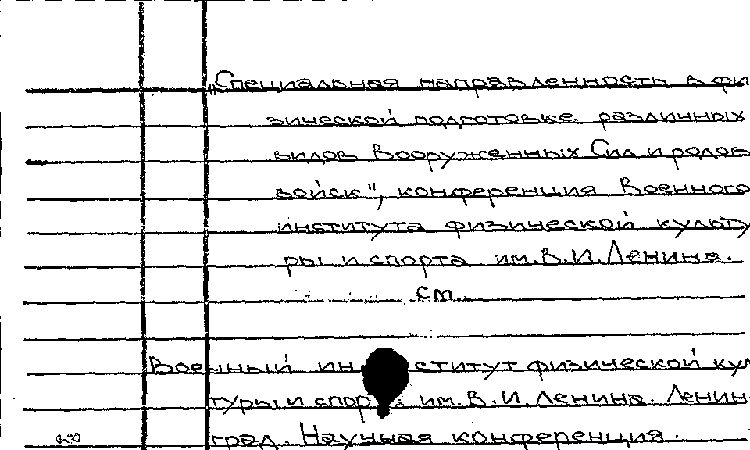 „Специальная направленность в фи
зической подготовке различных
видов Вооруженных Сил и родов
войск", конференция Военного
института физической культу
ры и спорта им. В. И. Ленина.
см.
Военный институт физической кул
туры и спорта им. В. И. Ленина. Ленин
град. Научная конференция.